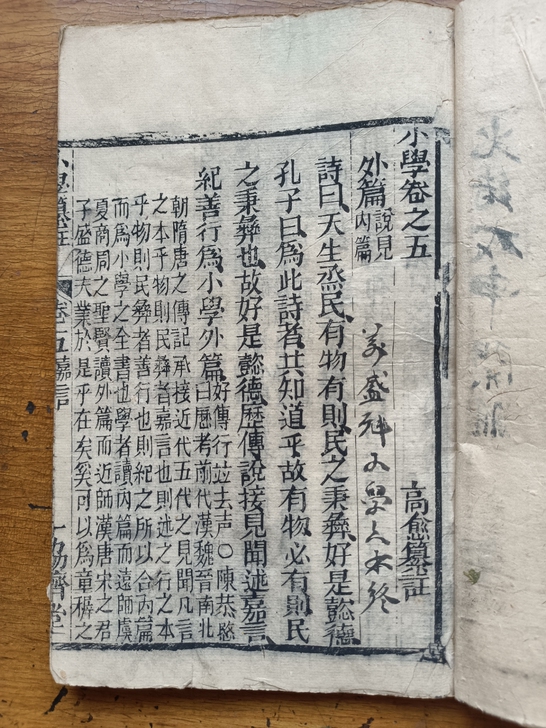 小學卷之五
外篇 說見內篇
高愈纂註
詩曰天生烝民有物有則民之秉彝好是懿德
孔子曰爲此詩者其知道乎故有物必有則民
之秉彝也故好是懿德歷傳說接見聞述嘉言
紀善行爲小學外篇 好傳行並去声〇陳恭愍
曰歷考前代漢魏晉南北
朝隋唐之傳記承接近代五代之見聞凡言
之本乎物則民彝者嘉言也則述之行之本
乎物則民彝者善行也則紀之所以合內篇
而爲小學之全書也學者讀內篇而遠師虞
夏商周之聖賢讀外篇而近師漢唐宋之君
子盛德大業於是乎在矣奚可以爲童穉之
小學纂註 卷五嘉言 一